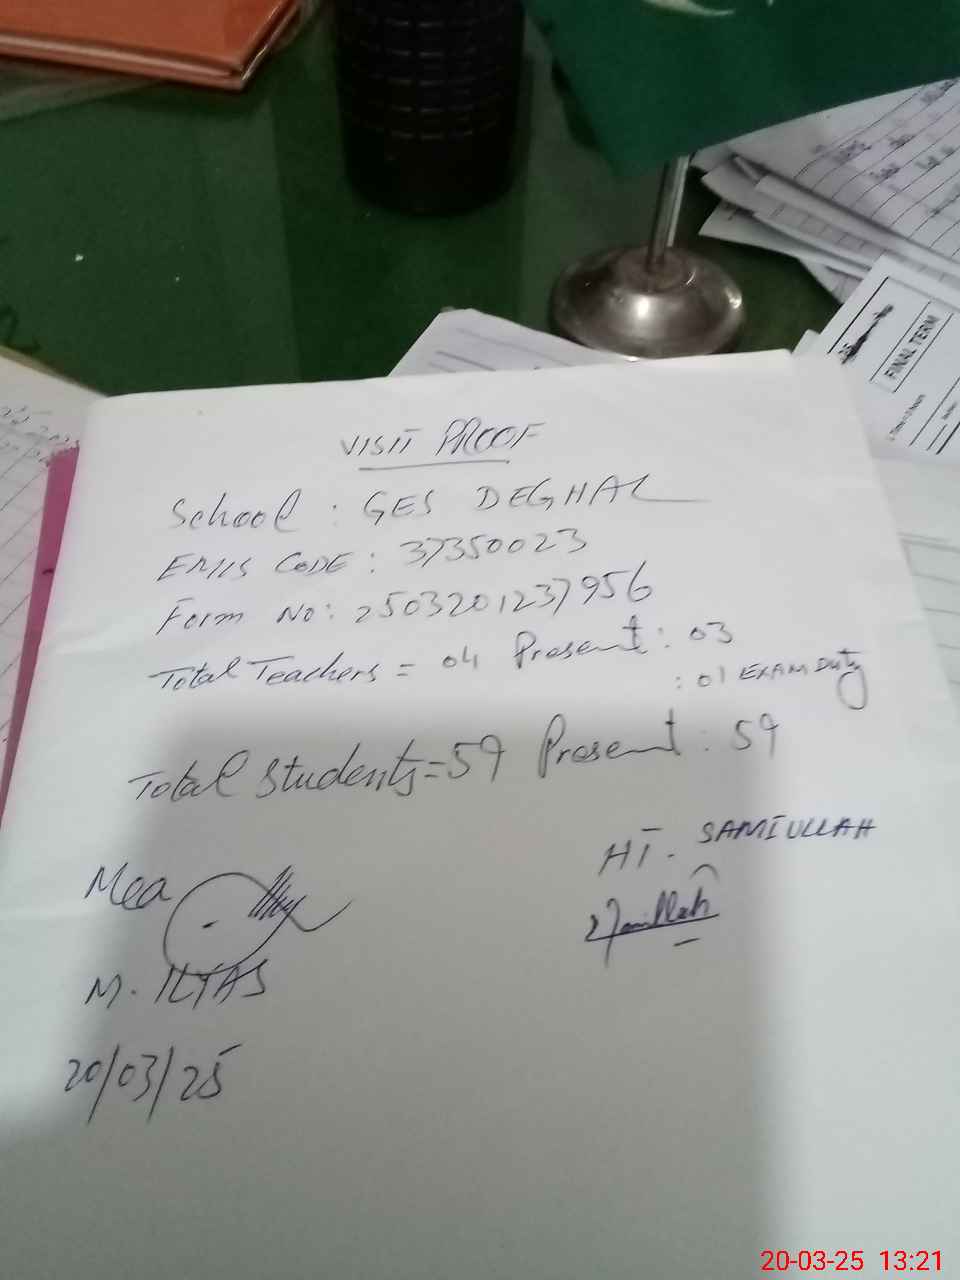 VISIT PROOF
School : GES DEGHAL
EMIS CODE : 37350023
Form No: 2503201237956
Total Teachers = 04 Present : 03
: 01 EXAM Duty
Total Students=59 Present : 59
HT. SAMIULLAH
Mea
M. ILYAS
20/03/25
FINAL TERM
20-03-25 13:21